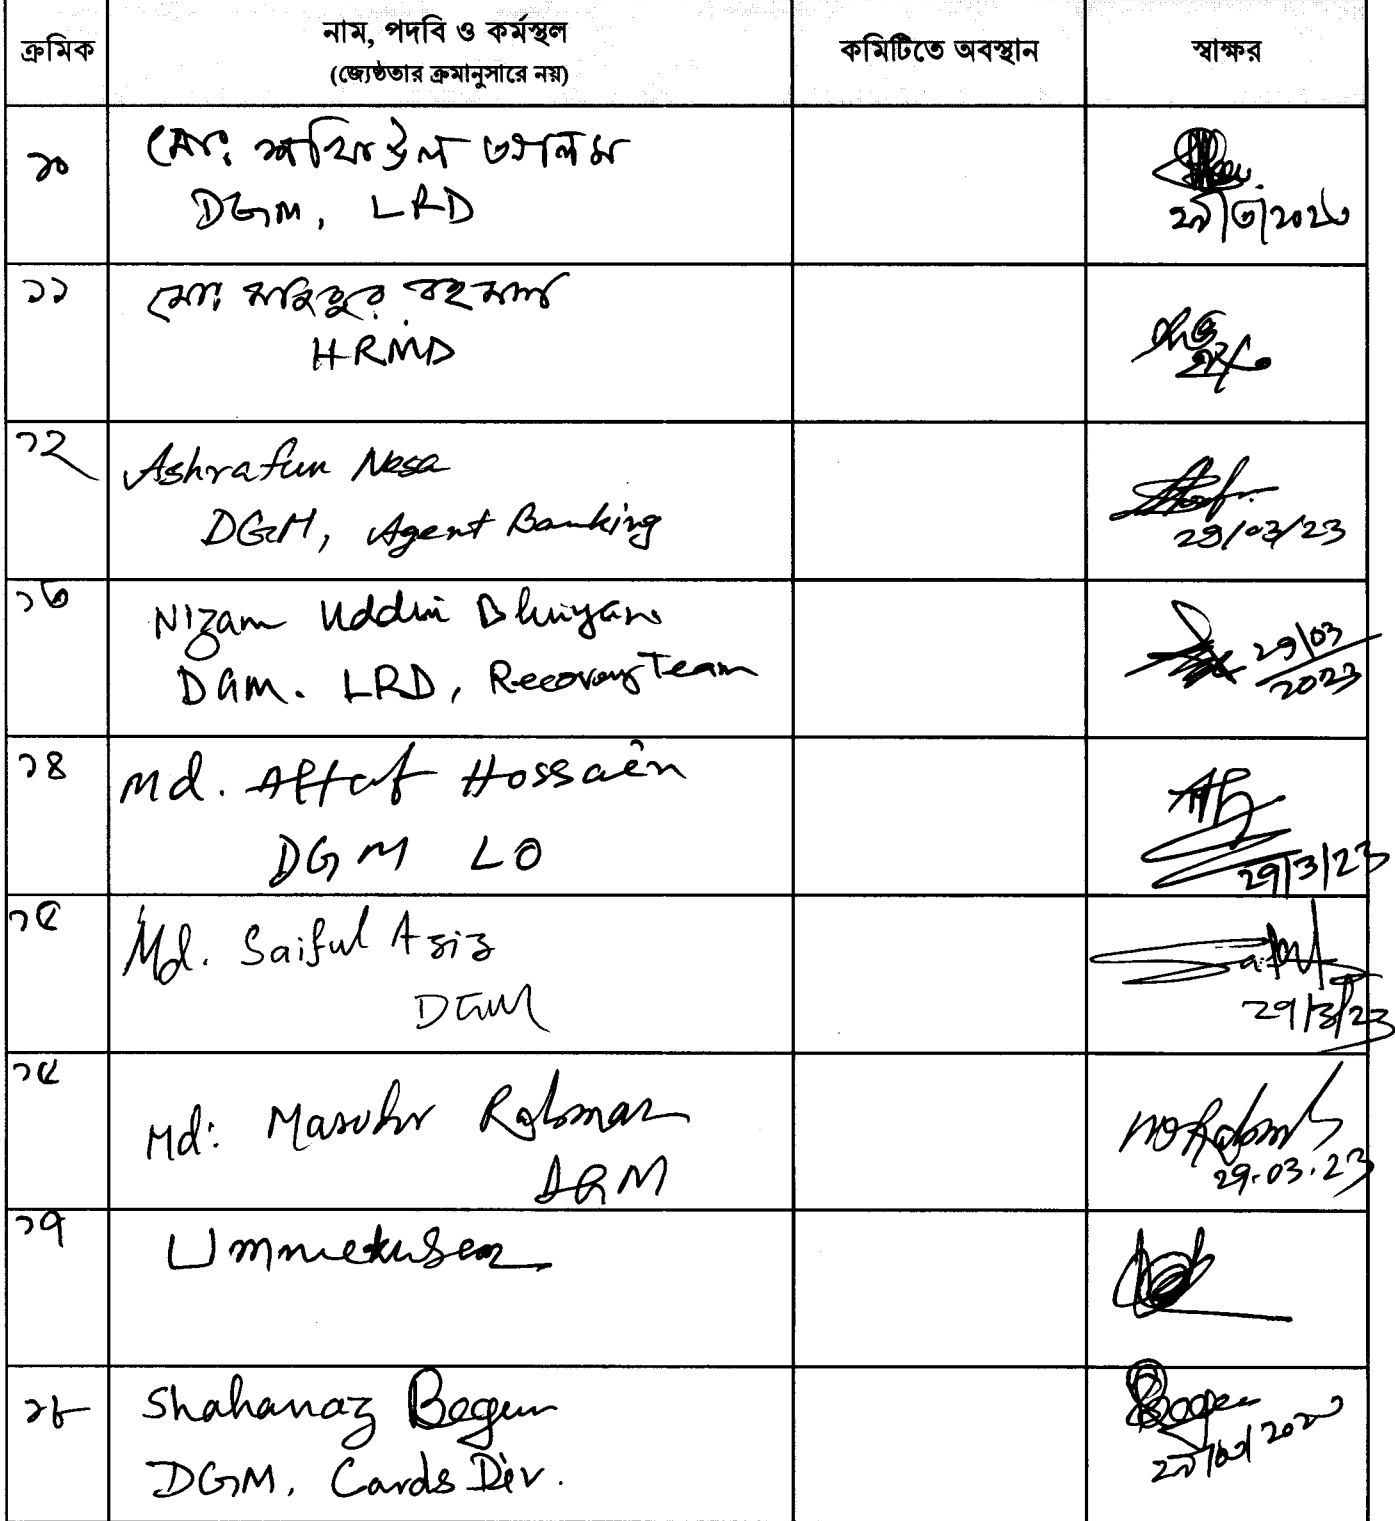 ক্রমিক
নাম, পদবি ও কর্মস্থল
(জ্যেষ্ঠতার ক্রমানুসারে নয়)
কমিটিতে অবস্থান
স্বাক্ষর
১০
মো: শফিউল আলম
DGM, LRD
২৯/৩/২০২৩
১১
মো: মাহিবুর রহমান
HRMD
১২
Ashrafun Nesa
DGM, Agent Banking
29/03/23
১৩
Nizam Uddin Bhuiyan
DGM. LRD, Recovery Team
29/03
2023
১৪
Md. Altaf Hossain
DGM LO
29/3/23
১৫
Md. Saiful Aziz
DGM
29/3/23
Md: Masudur Rahman
DGM
29.03.23
১৭
Ummekulsea
১৮
Shahanaz Begum
DGM, Cards Div.
২৯/০৩/২০২৩